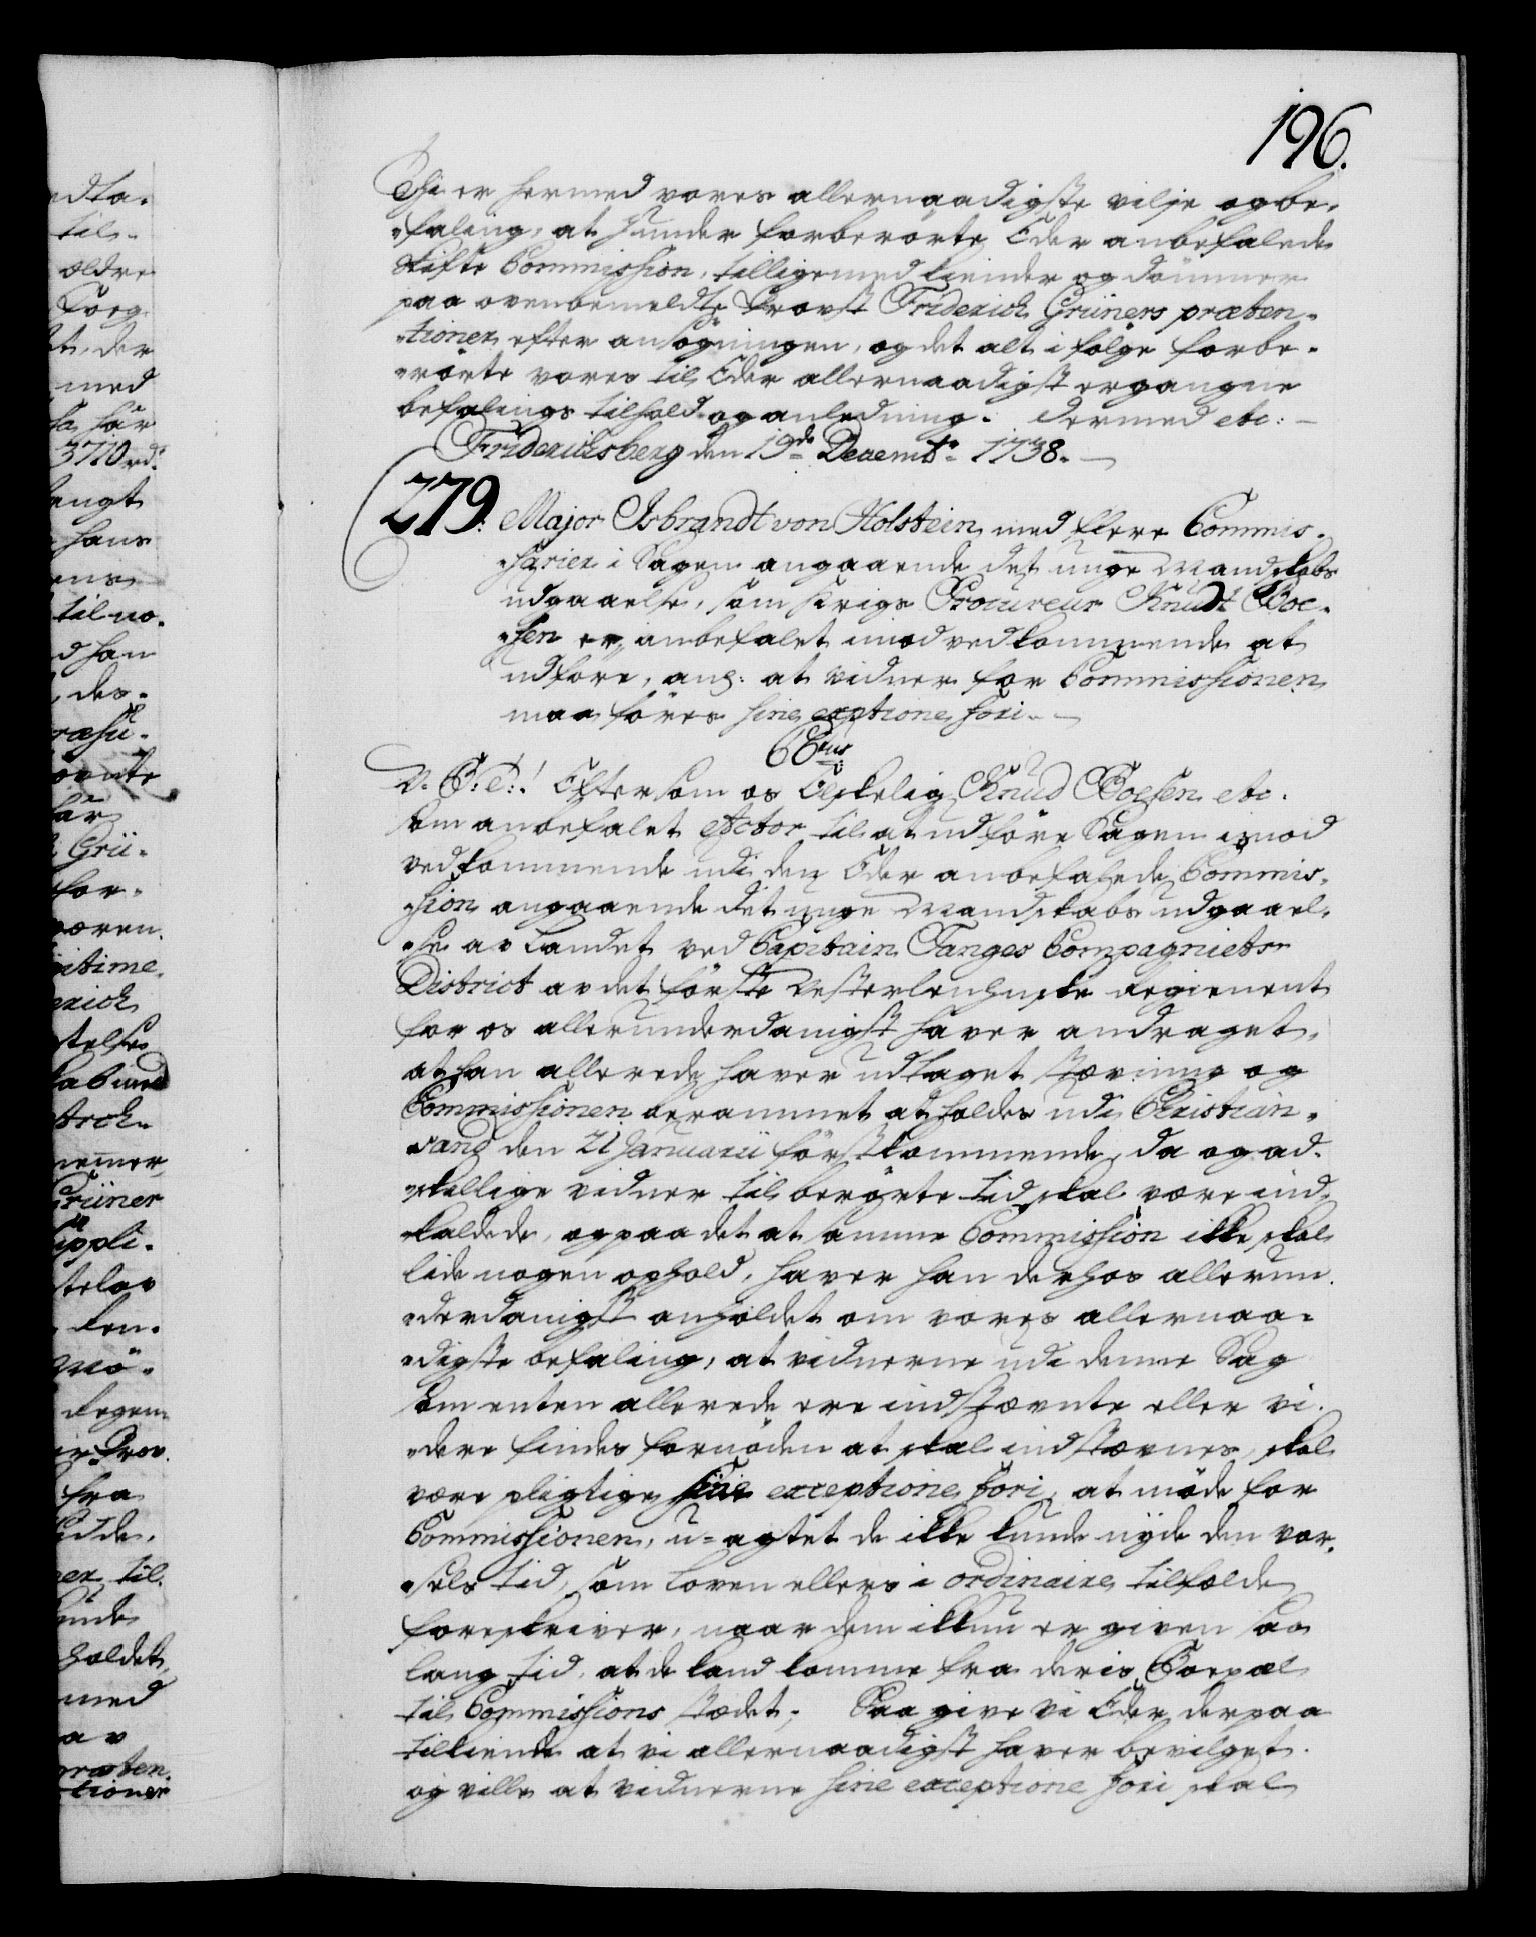 196.
Thi er hermed vores allernaadigste vilje og be-
faling, at I under forberørte Eder anbefalede
Skifte Commission, tilligemed kiender og dømmer
paa ovenbemeldte Provst Friderich Grüners præten-
tioner efter ansøgningen, og det alt i følge forbe-
rørte vores til Eder allernaadigst ergangne
befalings tilhold og anledning. Dermed etc:
Friderichsberg den 19de Decembr 1738.
279. Major Isbrandt von Holstein med flere Commis-
sarier i Sagen angaaende det unge Mandskabs
udgaaelse, som Krigs Procureur Knudt Boe-
sen er anbefalet imod vedkommende at
udføre, ang: at vidner for Commissionen
maa føres sine exeptione fori.
C6tus
V. G. T:! Eftersom os Velskelig Knud Boesen etc.
som anbefalet Actor til at udføre Sagen imod
vedkommende udi den Eder anbefalede Commis-
sion angaaende det unge Mandskabs udgaael-
se av Landet ved Capitain Tanges Compagniets
District av det første Vesterlenhuske Regiement
for os allerunderdanigst haver andraget,
at han allerede haver udtaget Stævning og
Commissionen berammet at holdes udi Christian-
sand den 21 Januarii førstkommende, da og ad-
skellige vidner til berørte tid skal være ind-
kaldede, og paa det at samme Commission ikke skal
lide nogen ophold, haver han derhos allerun-
derdanigst anholdet om vores allernaa-
digste befaling, at vidnerne udi denne Sag
som enten allerede ere indstævnte eller vi-
dere findes fornøden at skal indstævnes, skal
være pligtige sine exceptione fori, at møde for
Commissionen, u-agtet de ikke kunde nyde den var-
sels tid, som Loven ellers i ordinaire tilfælde
foreskriver, naar dem ikkun er given saa
lang tid, at de kand komme fra deris Boepæl
til Commissions stædet; Saa give vi Eder derpaa
tilkiende at vi allernaadigst haver bevilget
og ville at vidnerne sine exceptione fori skal